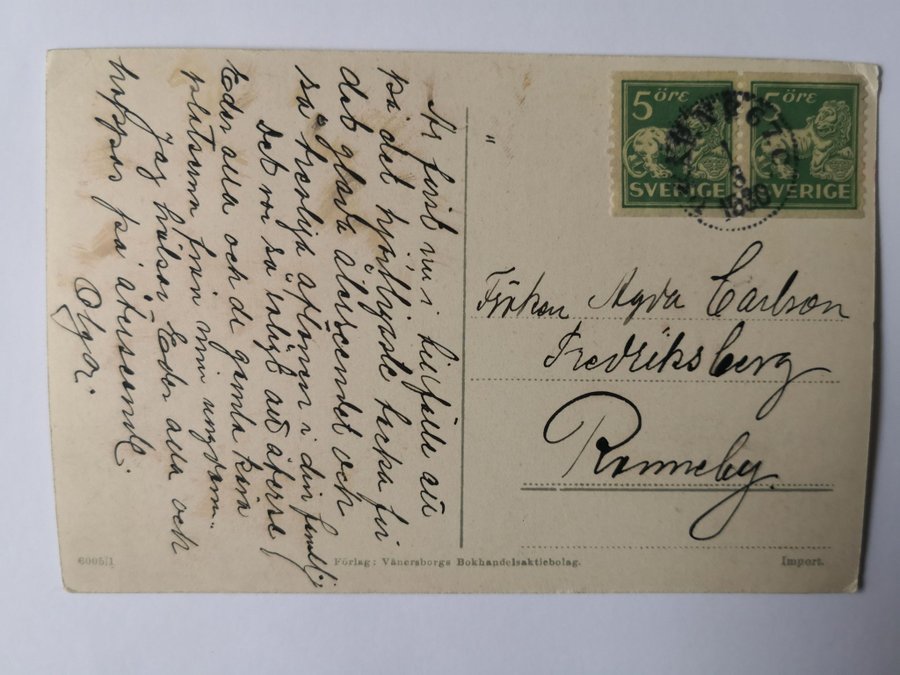 Är först nu i tillfälle att
på det hjärtligaste tacka för
det glada återseendet och
så trevliga aftonen i din familj
Det var så roligt att återse
Eder alla och de gamla kära
platserna från min ungdom.
Jag hälsar Eder alla och
hoppas på återseende.
Olga.
"
5 ÖRE
SVERIGE
5 ÖRE
SVERIGE
Fröken Agda Carlson
Fredriksberg
Ronneby.
6005/1
Förlag: Vänersborgs Bokhandelsaktiebolag.
Import.